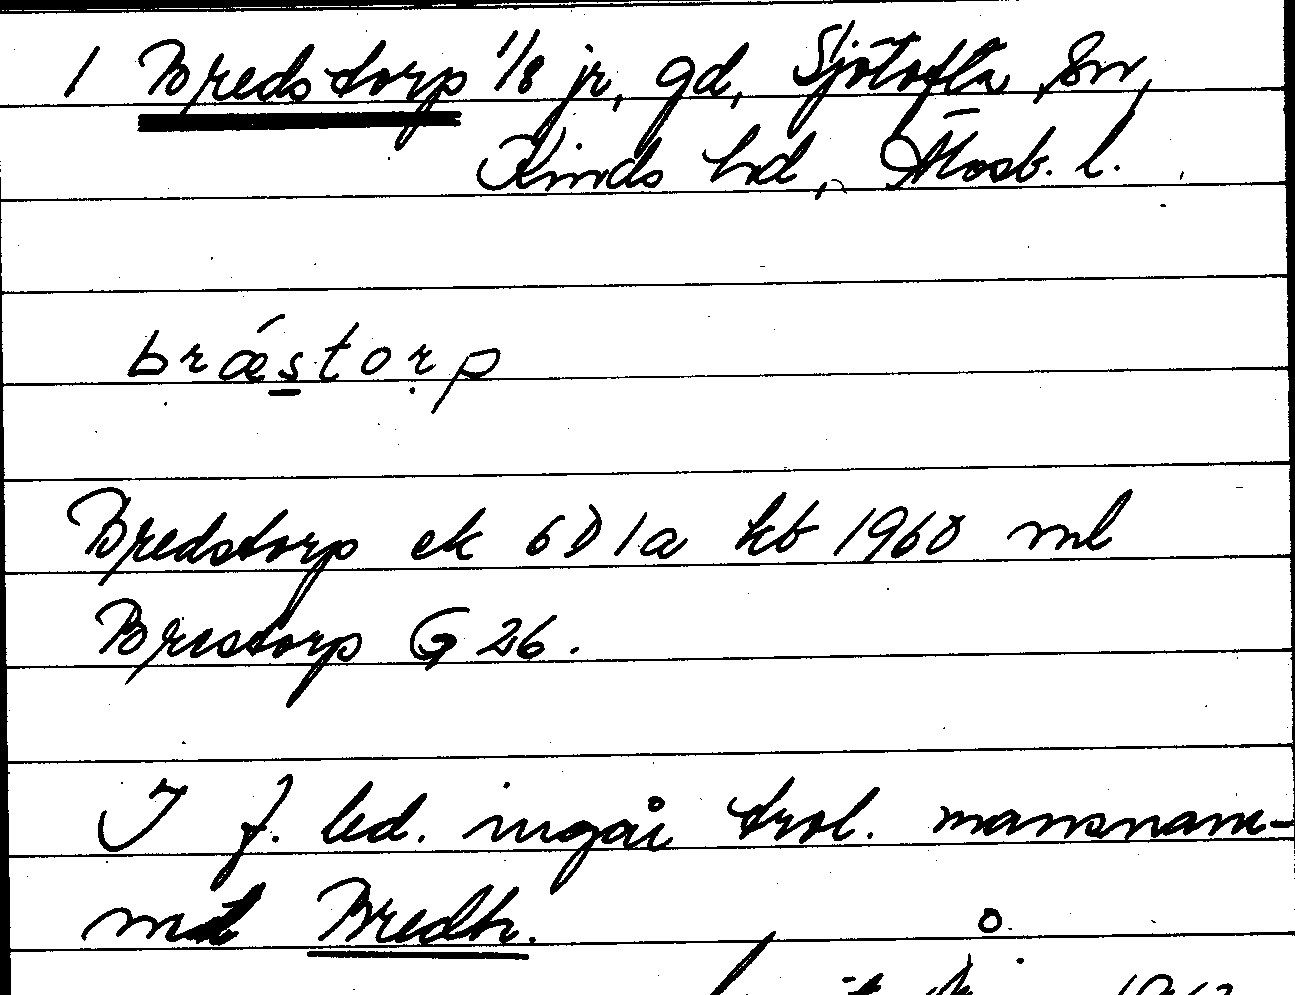 1 Bredstorp 1/8 jr, gd, Sjötofta sn,
Kinds hd, Älvsb. l.
bræ´storp
Bredstorp ek 6D1a kb 1960 ml
Brestorp G 26.
I f. led. ingår trol. mansnam-
net Bredh.